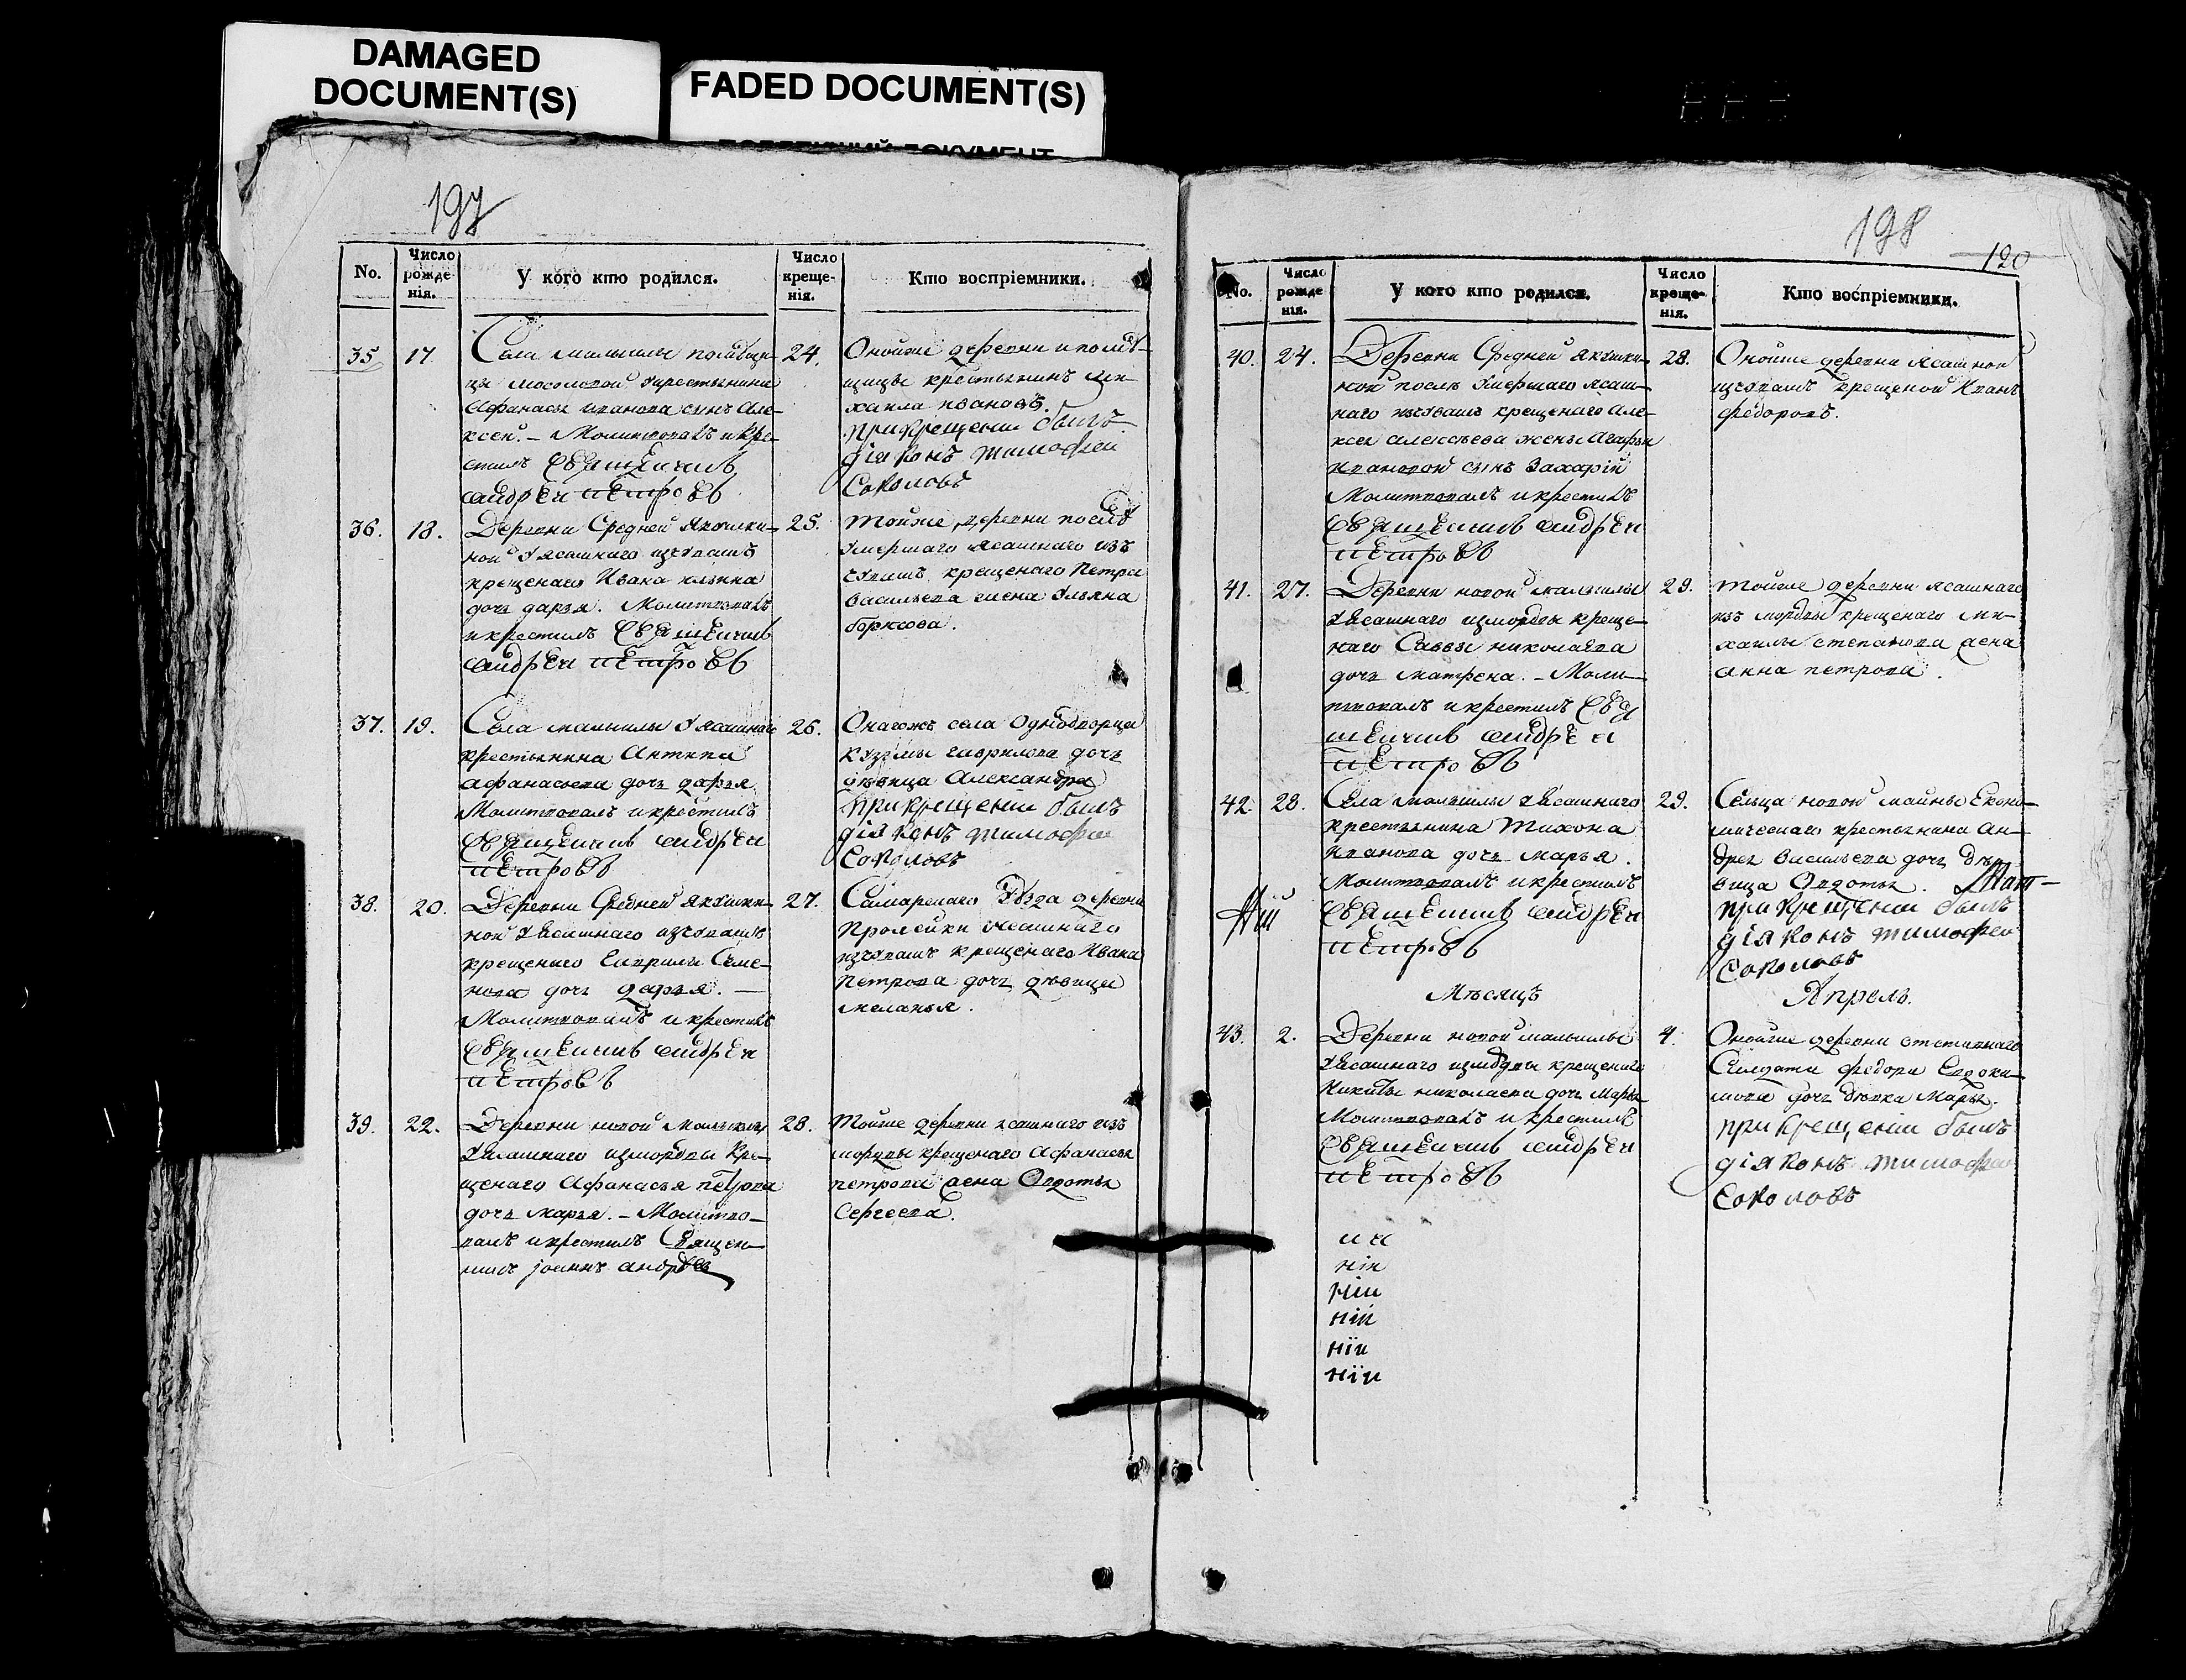 DAMAGED
DOCUMENT(S)
FADED DOCUMENT(S)
197
No.
Число рожденія.
У кого кто родился.
Число крещенія.
Кто воспріемники.
35
17.
Села мальцылы помѣщи-
цы Мосоловой Укрестьянина
Афанасья иванова сынъ Але-
ксей. – Молитвовалъ и кре-
стилъ Священникъ
Андрей Петровъ
24.
Оной же деревни и помѣ-
щицы крестьянинъ Ми-
хаила ивановъ.
При крещеніи былъ
діаконъ Тимофей
Соколовъ
36.
18.
Деревни Средней Якушки-
ной Уясашнаго изчувашъ
крещенаго Ивана ильина
дочь дарья. Молитвовалъ
и крестилъ Священникъ
Андрей Петровъ
25.
Тойже деревни послѣ
Умершаго ясашнаго изъ
чувашъ крещенаго Петра
Васильева жена Ульяна
37.
19.
Села Уясашнаго
крестьянина Антипа
Афанасьева дочь дарья
Молитвовалъ и крестилъ
Священникъ Андрей
Петровъ
26.
Онагожъ села Однодворца
кузьмы гаврилова дочь
дѣвица Александра
При крещеніи былъ
діаконъ Тимофей
Соколовъ
38.
20.
Деревни Средней Якушки-
ной Уясашнаго изчувашъ
крещенаго Гаврилы Семе-
нова дочь дарья. –
Молитвовалъ и крестилъ
Священникъ Андрей
Петровъ
27.
Самарскаго Уѣзда деревни
Пролейки ясашнаго
изчувашъ крещенаго Ивана
Петрова дочь дѣвица
меланья.
39.
22.
Деревни новой
Уясашнаго измордвы Кре-
щенаго Афанасья петрова
дочь марья. – Молитво-
валъ и крестилъ Священ-
никъ Іоаннъ андреевъ
28.
Тойже деревни ясашнаго изъ
мордвы крещенаго Афанасья
петрова жена Авдотья
Сергеева.
198
120
No.
Число рожденія.
У кого кто родился.
Число крещенія.
Кто воспріемники.
40.
24.
Деревни Средней Якушки-
ной послѣ Умершаго ясаш-
наго изчувашъ крещенаго Але-
ксея алексѣева жены Агафьи
Ивановой сынъ Захарій
Молитвовалъ и крестилъ
Священникъ Андрей
Петровъ
28.
Оной же деревни ясашной
изчувашъ крещеной Иванъ
федоровъ.
41.
27.
Деревни новой
Уясашнаго измордвы креще-
наго Савы николаева
дочь матрена. – Моли-
твовалъ и крестилъ Свя
щенникъ Андрей
Петровъ
29.
Тойже деревни ясашнаго
изъ мордвы крещенаго Ми-
хаилы степанова жена
анна петрова.
42.
28.
Села Уясашнаго
крестьянина Тихона
Иванова дочь марья.
Молитвовалъ и крестилъ
Священникъ Андрей
Петровъ
29.
Сельца новой майны Еконо-
мическаго крестьянина Ан-
дрея васильева дочь дѣ-
вица Авдотья.
При крещеніи былъ
діаконъ Тимофей
Соколовъ
Мѣсяцъ
Апрель.
43.
2.
Деревни новой
Уясашнаго измордвы крещенаго
Никиты николаева дочь Марья
Молитвовалъ и крестилъ
Священникъ Андрей
Петровъ
4.
Оной же деревни отставнаго
Салдата федора Евдоки-
мова дочь дѣвка Марья.
При крещеніи былъ
діаконъ Тимофей
Соколовъ
нін
ніи
ній
нїи
нїи